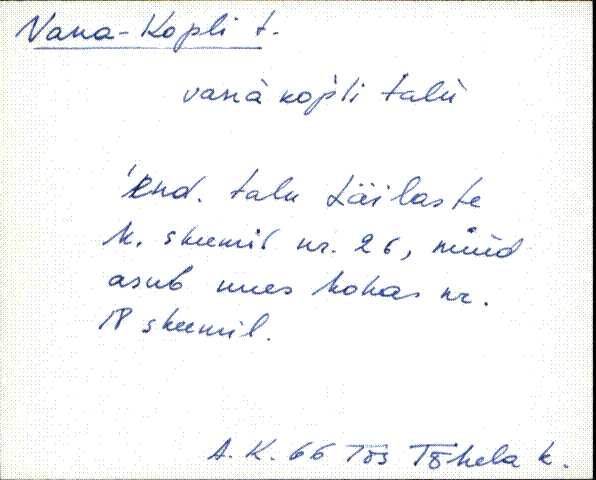 Vana-Kopli t.
vanà kop̀li talù
End. talu Läilaste
k. skeemil nr. 26, nüüd
asub uues kohas nr.
18 skeemil.
A. K. 66 Tõs Tõhela k.